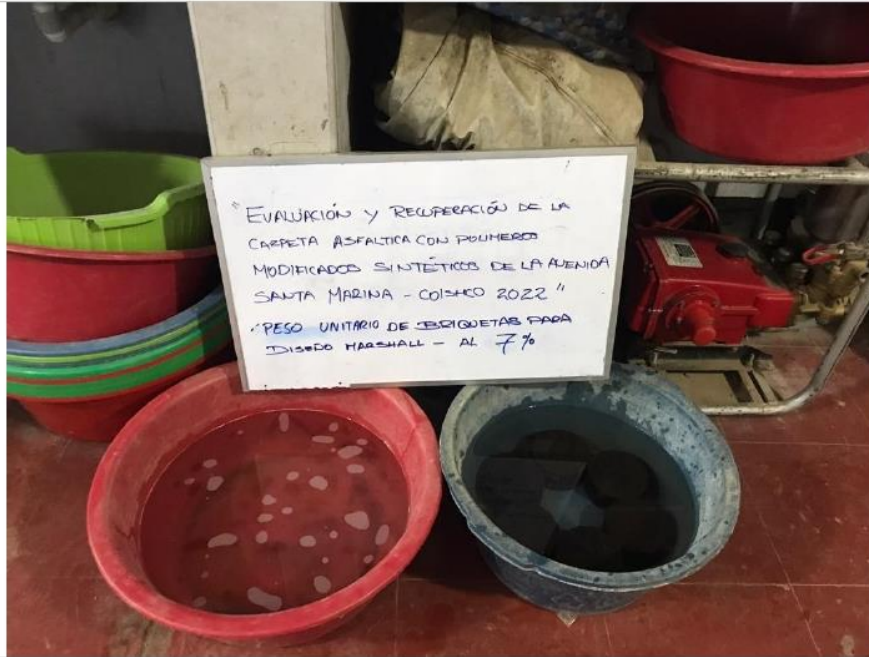 "EVALUACIÓN Y RECUPERACIÓN DE LA
CARPETA ASFALTICA CON POLIMEROS
MODIFICADOS SINTÉTICOS DE LA AVENIDA
SANTA MARINA - COISHCO 2022"
"PESO UNITARIO DE BRIQUETAS PARA
DISEÑO MARSHALL - AL 7%